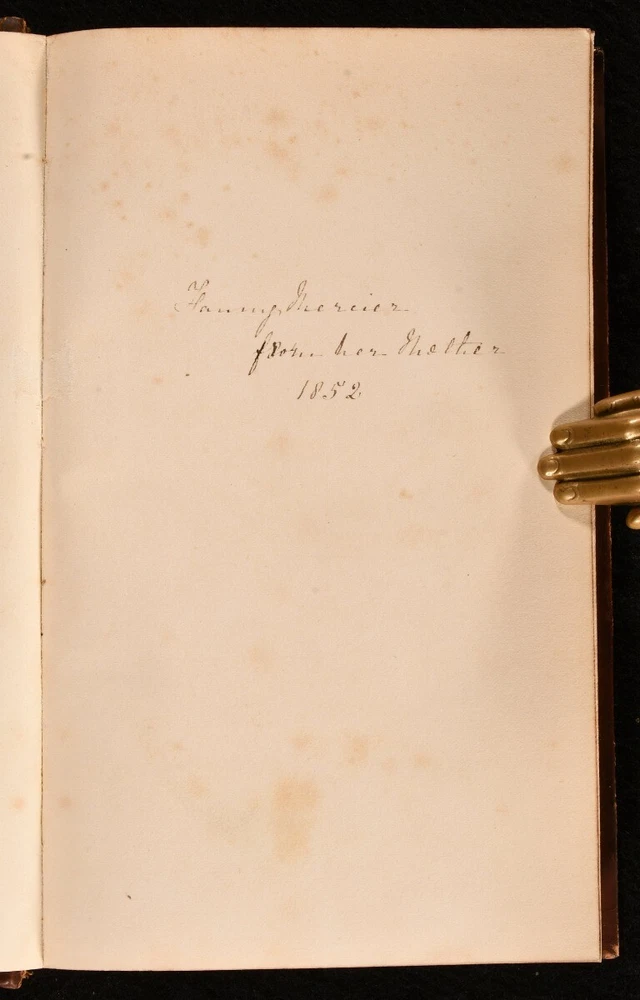 Fanny Mercier
from her Mother
1852